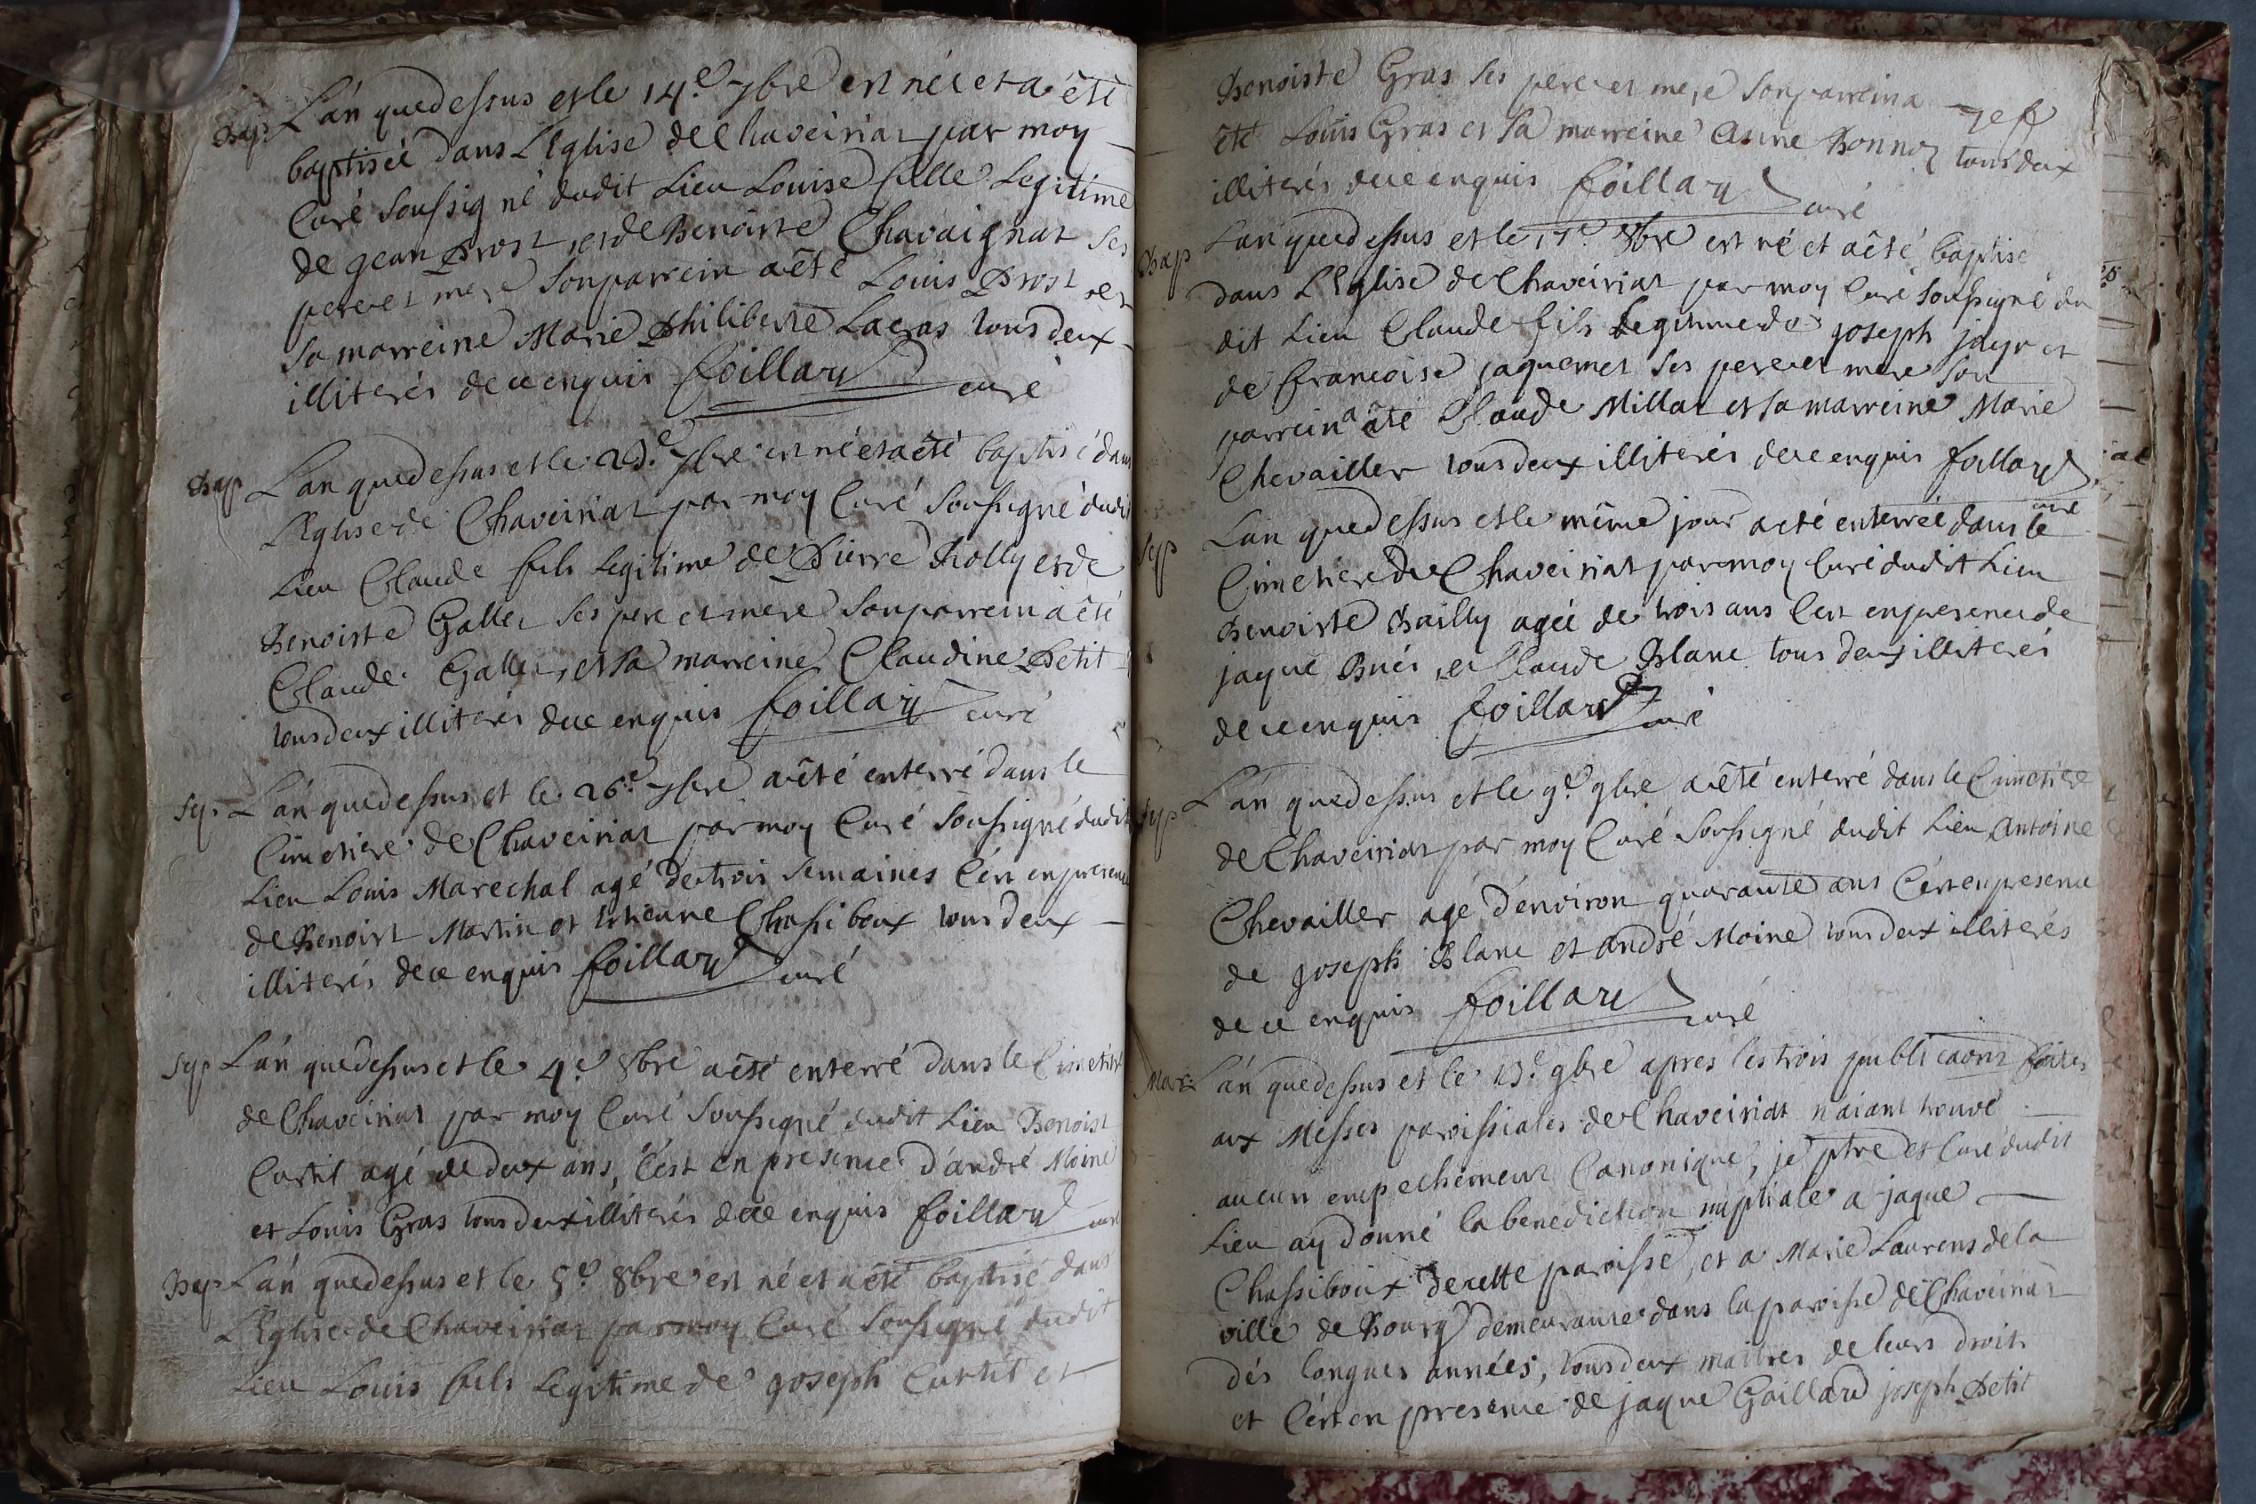 Bap L'an que dessus et le 14.e 7bre est née et a été
baptisée dans L'Eglise de Chaveiriat par moy
Curé soussigné dudit Lieu Louise fille Legitime
de jean Prost, et de Benoiste Chavaignat ses
pere et mere son parrein a êté Louis Prost et
sa marreine Marie Philiberte Lacras tous deux
illiterés de ce enquis foillard curé
Bap L'an que dessus et le 23.e 7bre est né et a êté baptisé dans
L'Eglise de Chaveiriat par moy Curé soussigné dudit
Lieu Claude fils legitime de Pierre Rolly et de
Benoiste Gallet ses pere et mere son parrein a êté
Claude Gallet, et sa marreine Claudine Petit
tous deux illiterés de ce enquis foillard curé
Sep L'an que dessus et le 26.e 7bre a êté enterré dans le
Cimetiere de Chaveiriat par moy Curé soussigné dudit
Lieu Louis Marechal agé de trois semaines C'est en presence
de Benoist Martin et Etienne Chassiboux tous deux
illiterés de ce enquis foillard curé
Sep L'an que dessus et le 4.e 8bre a êté enterré dans le Cimetiere
de Chaveiriat par moy Curé soussigné dudit Lieu Benoist
Curtil agé de deux ans, C'est en presence d'andré Moine
et Louis Gras tous deux illiterés de ce enquis foillard curé
Bap L'an que dessus et le 5.e 8bre est né et a êté baptisé dans
L'Eglise de Chaveiriat par moy Curé soussigné dudit
Lieu Louis fils Legitime de joseph Curtil et
Benoiste Gras ses pere et mere son parrein a
êté Louis Gras et sa marreine Anne Bonnoz tous deux
illiterés de ce enquis foillard curé
Bap L'an que dessus et le 17.e 8bre est né et a êté baptisé
dans L'Eglise de Chaveiriat par moy Curé soussigné du
dit Lieu Claude fils Legitime de joseph jayr et
de francoise jaquemet ses pere et mere son
parrein a êté Claude Millat et sa marreine Marie
Chevailler tous deux illiterés de ce enquis foillard
curé
Sep L'an que dessus et le même jour a eté enterrée dans le
Cimetiere de Chaveiriat par moy Curé dudit Lieu
Benoiste Bailly agée de trois ans C'est en presence de
jaque et Claude Blanc tous deux illiterés
de ce enquis foillard curé
Sep L'an que dessus et le 9.e 9bre a êté enterré dans le Cimetiere
de Chaveiriat par moy Curé soussigné dudit Lieu Antoine
Chevailler agé d'environ quarante ans C'est en presence
de joseph Blanc et andré Moine tous deux illiterés
de ce enquis foillard curé
Mar: L'an que dessus et le 13.e 9bre apres les trois publicaons faites
aux Messes paroissiales de Chaveiriat n'aiant trouvé
aucun empechement Canonique, je ptre et Curé dudit
Lieu ay donné la benediction nuptiale a jaque
Chassiboux de cette paroisse, et a Marie Laurens de la
ville de Bourg demeurante dans la paroisse de Chaveiriat
dés longues années, tous deux maitres de leurs droits
et C'est en presence de jaque Gaillard joseph Petit